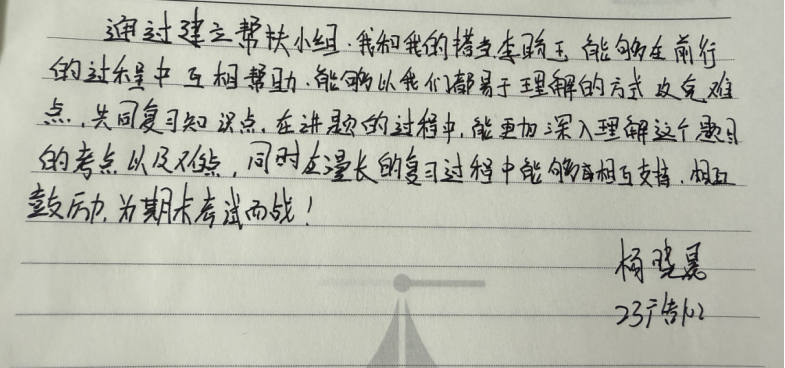 通过建立帮扶小组,我和我的搭档李晗玉 能够在前行
的过程中 互相帮助,能够以我们都易于理解的方式攻克难
点,共同复习知识点,在讲题的过程中,能更加深入理解这个题目
的考点以及难点,同时在漫长的复习过程中能够互相支持,相互
鼓励,为期末考试而战!
杨晓晨
23广告